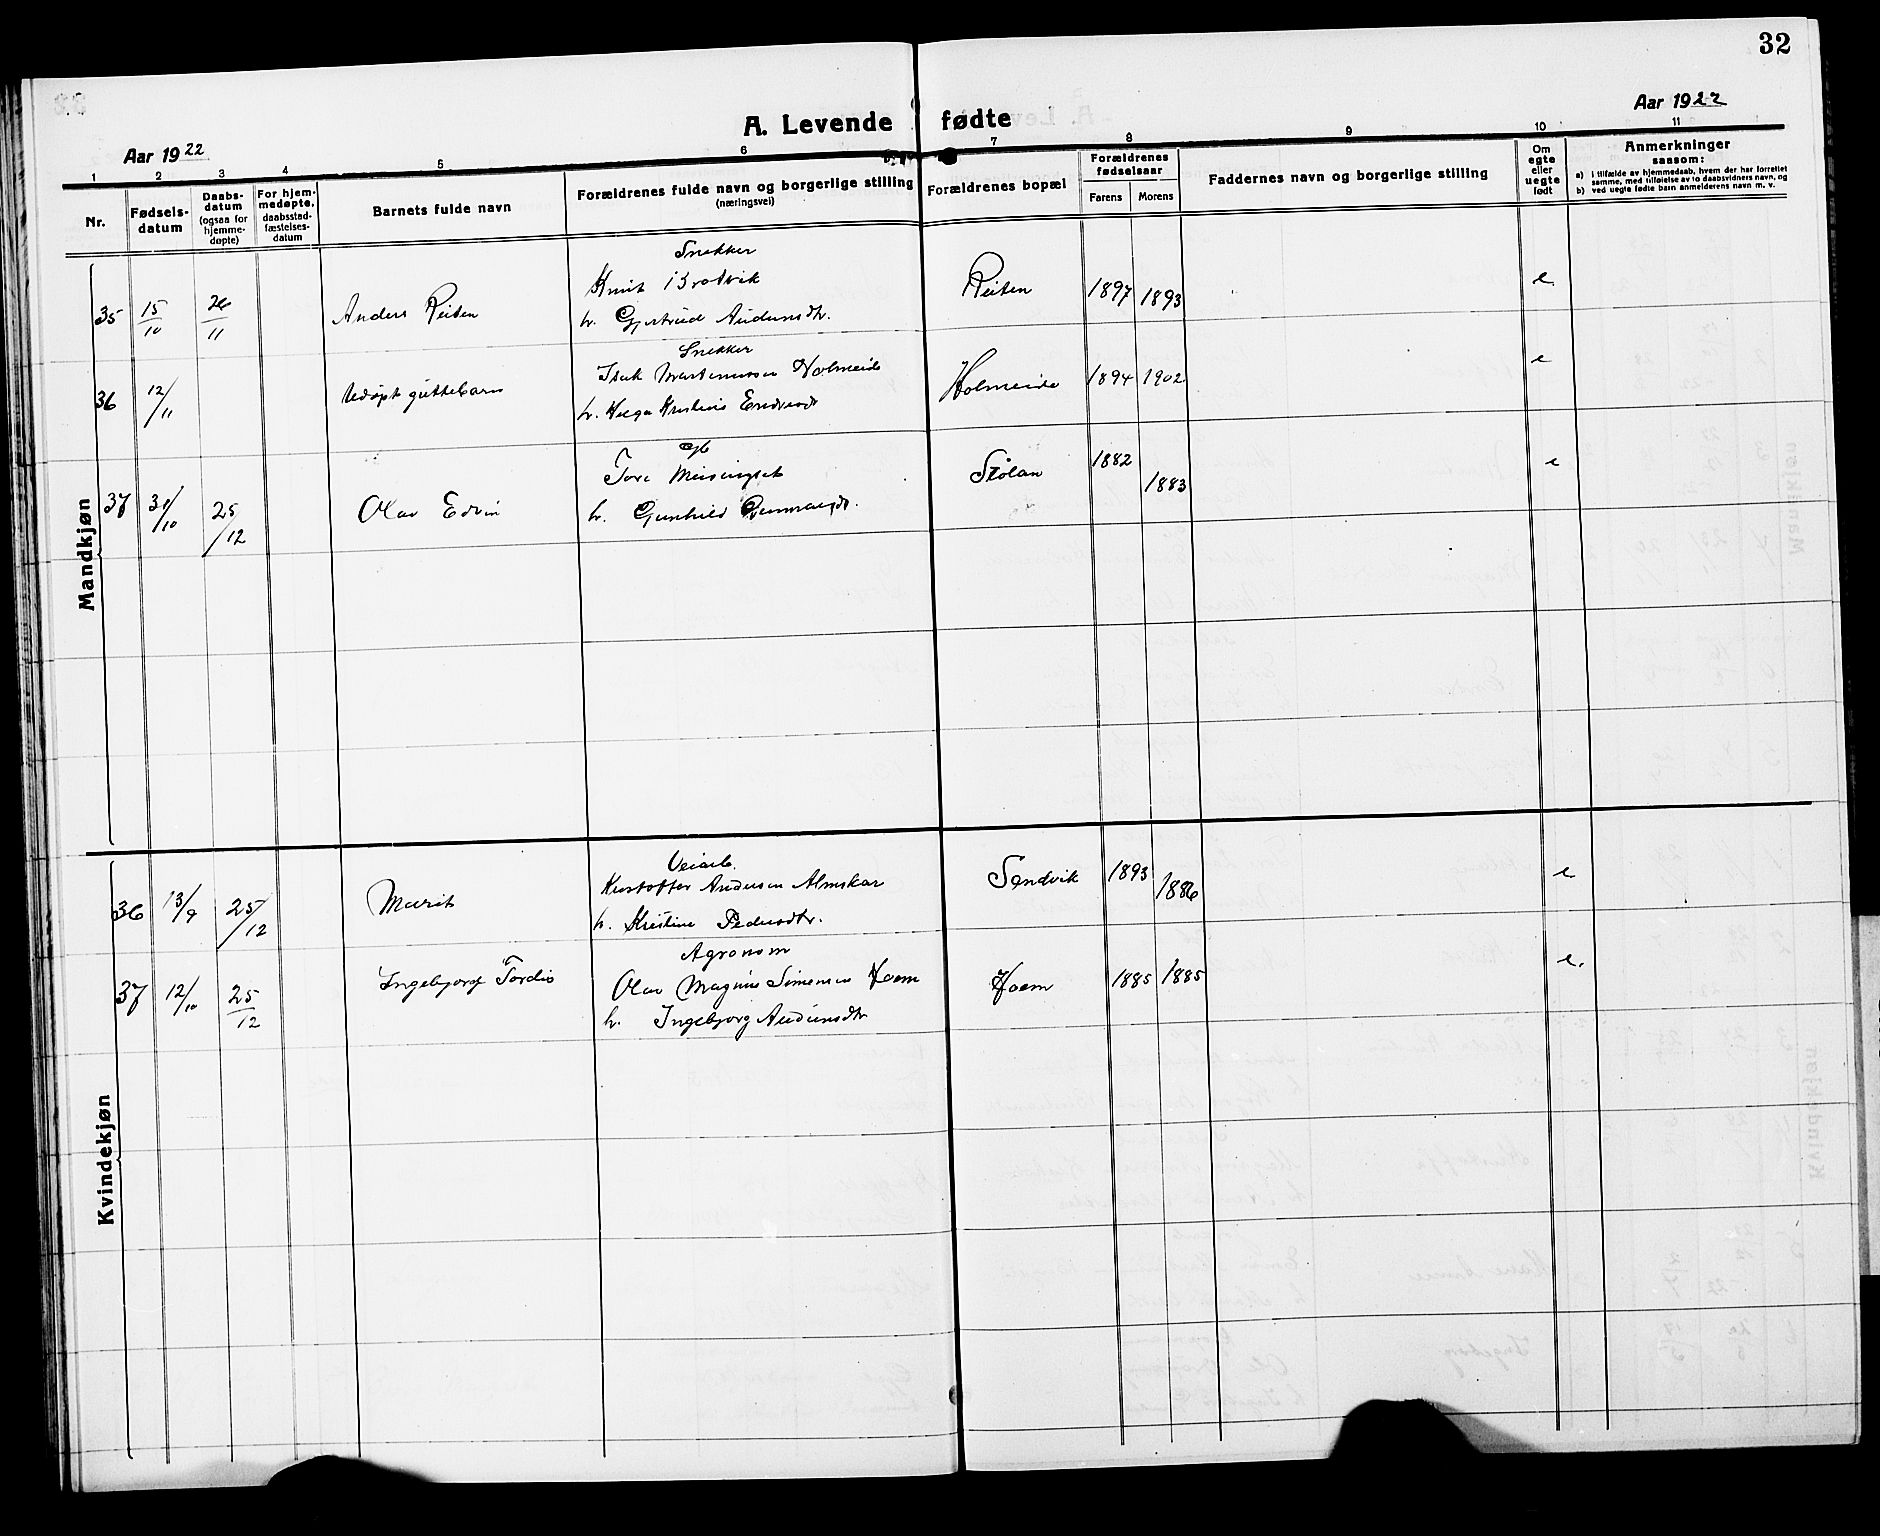 32
A. Levende fødte
Aar 1922
Aar 1922
1 2 3 4 5 6 7 8 9 10 11
Nr.
Fødsels-
datum
Daabs-
datum
(ogsaa for
hjemme-
døpte)
For hjem-
medøpte,
daabsstad-
fæstelses-
datum
Barnets fulde navn
Forældrenes fulde navn og borgerlige stilling
(næringsvei)
Forældrenes bopæl
Forældrenes
fødselsaar
Farens Morens
Faddernes navn og borgerlige stilling
Om
egte
eller
uegte
født
Anmerkninger
saasom:
a) i tilfælde av hjemmedaab, hvem der har forrettet
samme, med tilføielse av to daabsvidners navn, og
b) ved uegte fødte barn anmelderens navn m. v.
Mandkjøn
Snekker
35 15/10 26/11 Anders Reiten Knut Brotvik Reiten 1897 1893 e
h. Gjertrud Andersdtr.
Snekker
36 12/11 Udøpt guttebarn Isak Martinussen Holmeide Holmeide 1894 1902 e
h. Helga Kristine
Gb
37 31/10 25/12 Olav Edvin Tore Meisingset Stølan 1882 1883 e
h. Gunhild
Kvindekjøn
Veiarb.
36 13/9 25/12 Marit Kristoffer Andersen Almskar Sandvik 1893 1886 e
h. Kristine Pedersdtr.
Agronom
37 12/10 25/12 Ingebjorg Tordis Olav Magnus Simensen Hoem Hoem 1885 1885 e.
h. Ingebjorg Audunsdtr